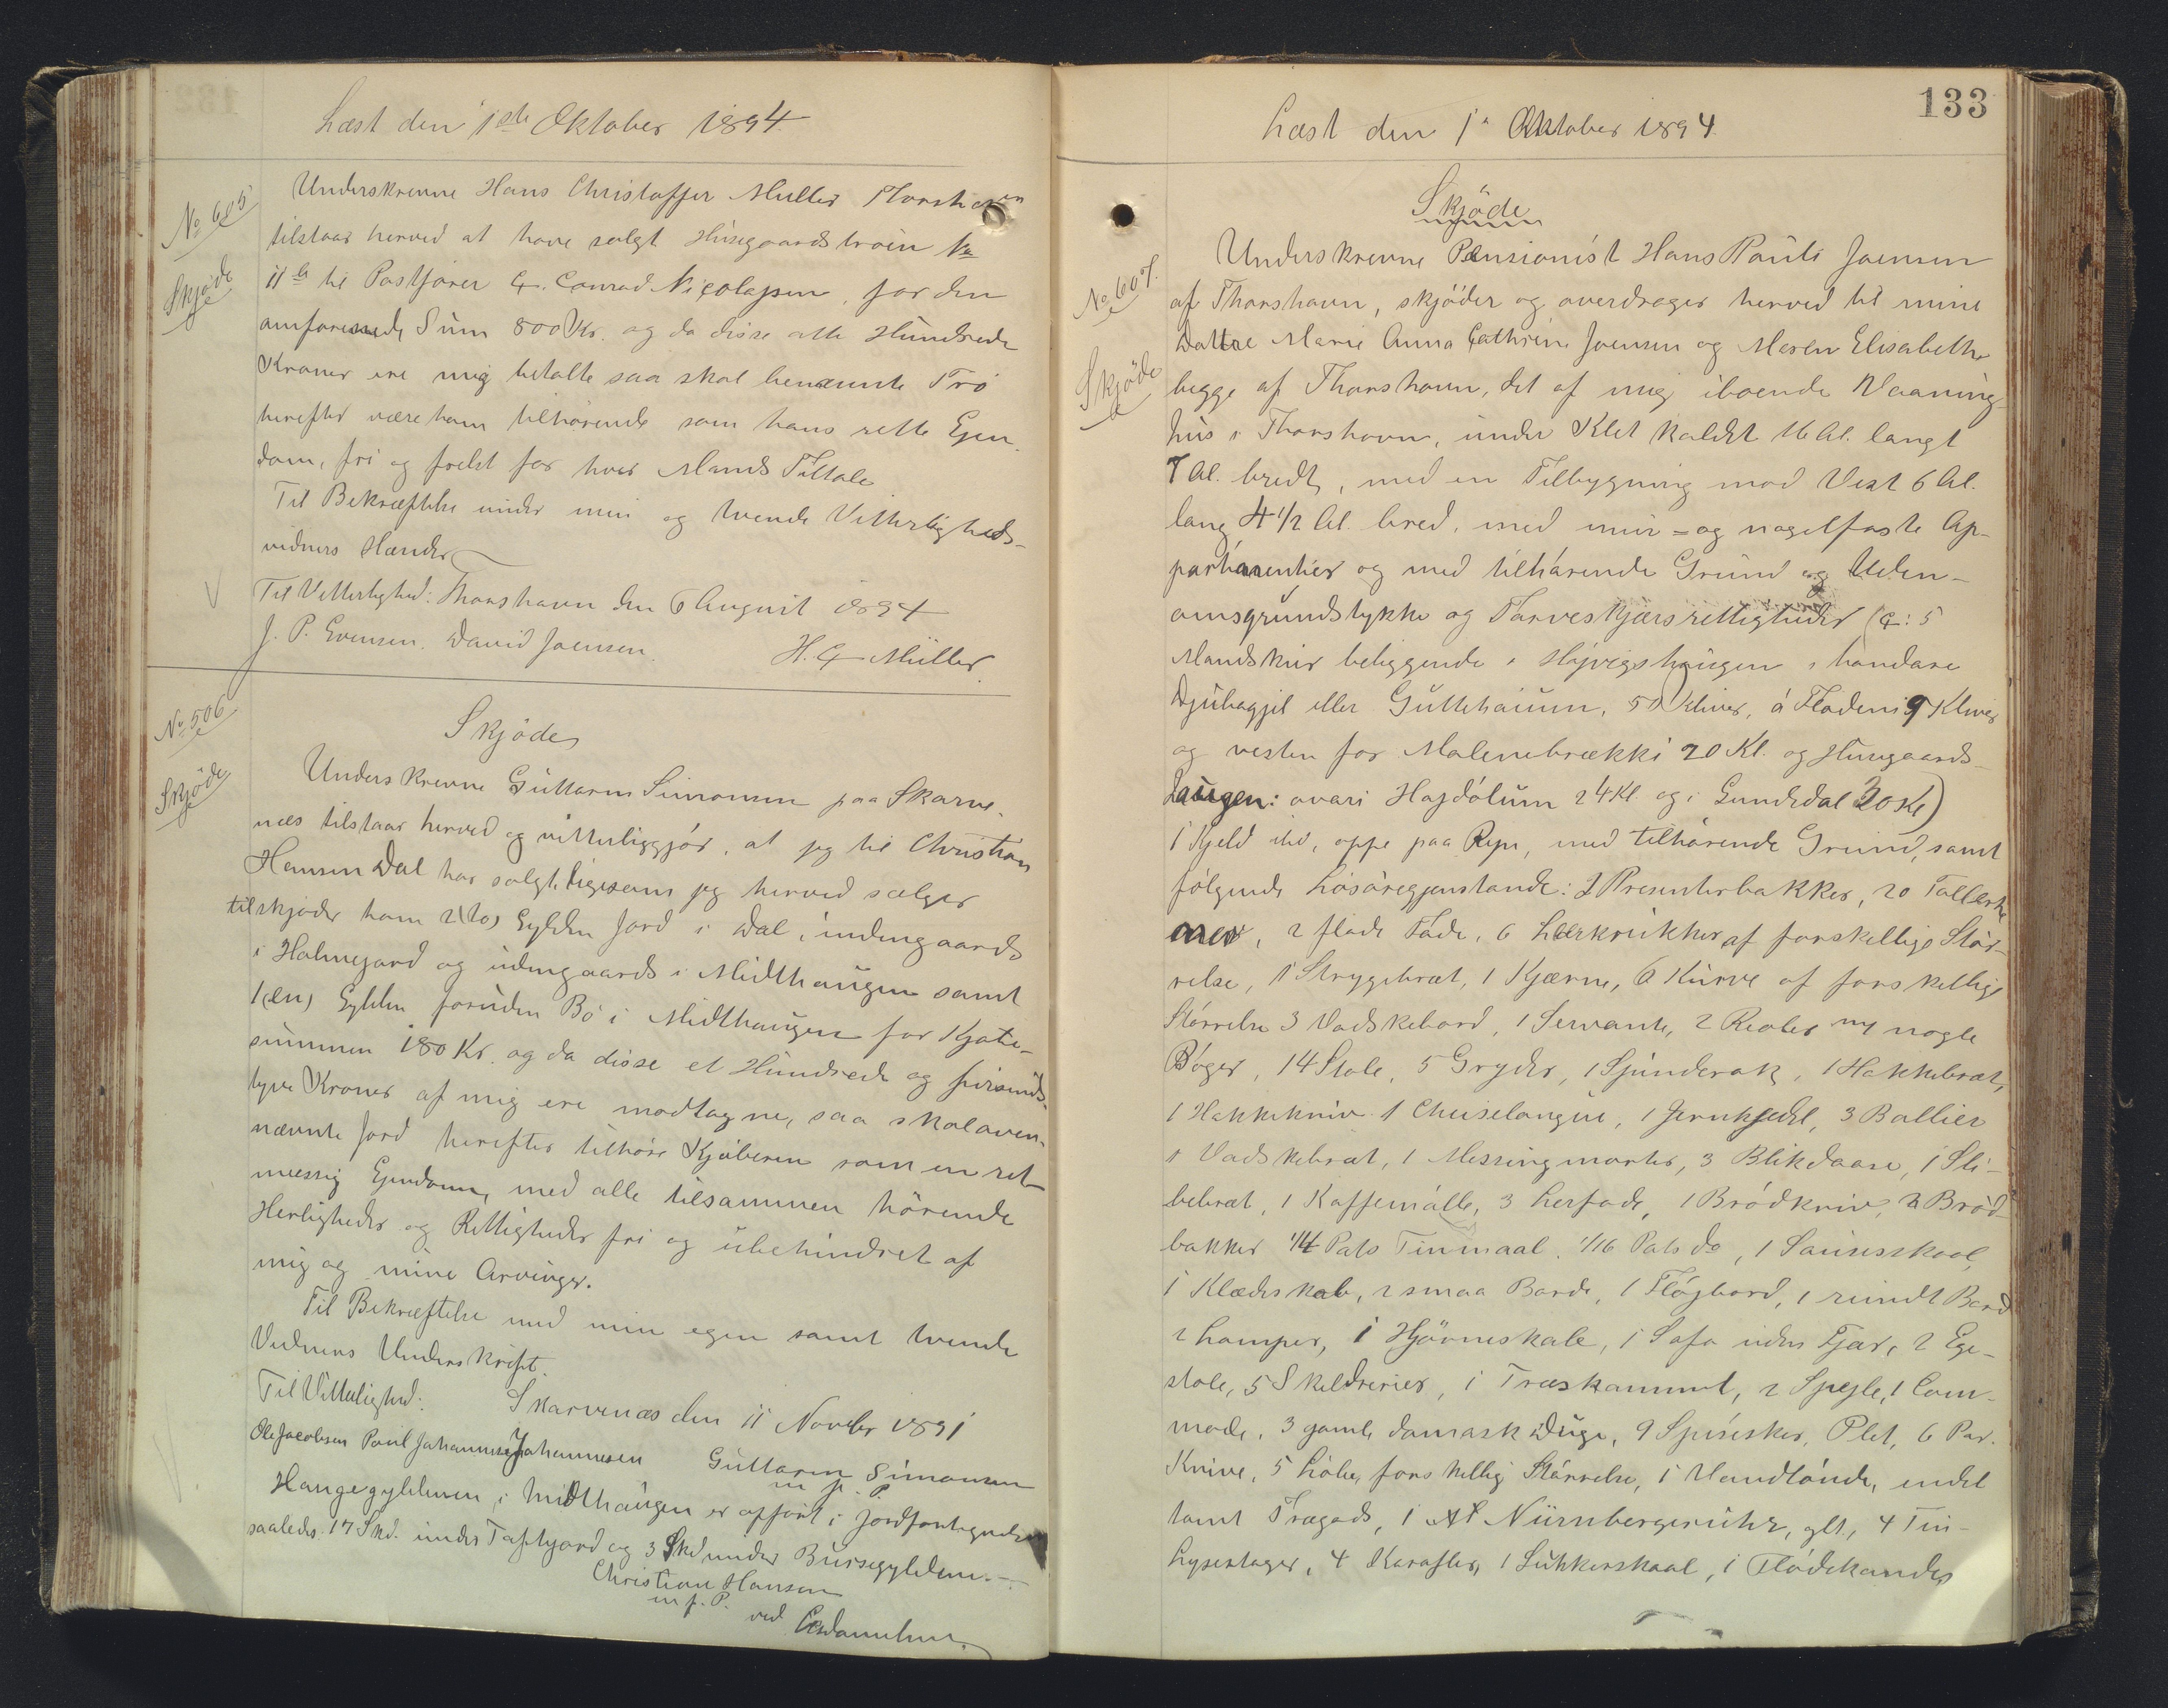 Læst den 1ste Oktober 1894.
No 605
Skjøde
Underskrevne Hans Christoffer Müller Thorshavn
tilstaar herved at have solgt Husegaardstroin No
11 b til Postfører C. Conrad Nicolajsen, for den
omforenede Sum 800 Kr. og da disse otte Hundrede
Kroner ere mig betalte saa skal benævnte Trö
herefter være ham tilhørende som hans rette Ejen
dom, fri og frelst for hver Mands Tiltale
Til Bekræftelse under min og tvende Vitterligheds-
vidners Hænder
Til Vitterlighed: Thorshavn den 6 August 1894
J. P. Evensen. David Joensen. H. C Müller.
No. 506
Skjøde
Skjøde
Underskrevne Guttorm Simonsen paa Skarve-
næs tilstaar herved og vitterliggjør, at jeg til Christian
Hansen Dal har solgt, ligesom jeg herved sælger
tilskjøder ham 2 (to) Gylden Jord i Dal, indengaards
i Holmegjard og udengaards i Midthaugen samt
1 (en) Gylden foruden Bø i Midthaugen for Kjøbe-
summen 180 Kr. og da disse et Hundrede og firsinds-
tyve Kroner af mig ere modtagne, saa skal oven-
nævnte Jord herefter tilhøre Kjøberen som en ret
mæssig Ejendom, med alle tilsammen hörende
Herligheder og Rettigheder fri og ubehindret af
mig og mine Arvinger.
Til Bekræftelse med min egen samt tvende
Vidners Underskrift.
Til Vitterlighed: Skarvenæs den 11 Novbr 1891
Ole Jacobsen Poul Johannes Johannesen Guttorm Simonsen
m. f. P.
Haugegyldenen i Midthaugen er opfört i Jordfortegnelsen
saaledes. 17 Skd. under Toftgjard og 3 Skd under Bursegyldenen.
Christian Hansen
m. f. P.
ved
133
Læst den 1. Oktober 1894
No 607.
Skjøde
Skjøde
Underskrevne Pensionist Hans Pauli Joensen
af Thorshavn, skjøder og overdrager herved til mine
Døttre Marie Anna Cathrine Joensen og Maren Elisabeth
begge af Thorshavn, det af mig iboende Vaaning-
hus i Thorshavn, under Klet kaldet 16 Al. langt
7 Al. bredt, med en Tilbygning mod Vest 6 Al.
lang 4 1/2 Al. bred, med mur= og nagelfaste Ap-
partinentier og med tilhörende Grund og Uden-
omsgrundstykke og Tørveskjærsrettigheder (: 5
Mandskur beliggende i Högvigshaugen i handare
Djubagjil eller Guttehaium, 50 Kliver, á Flødeni 9 Kliver
og vesten for Malenebrækki 20 Kl. og Husegaards-
haugen: ovari Hajdólum 24 Kl. og i Gundadal 30 Kl)
1 Kjeld ibd, oppe paa Ryn, med tilhörende Grund, samt
følgende Løsøregjenstande: 2 Presenterbakker, 20 Tallerk
ener, 2 flade Fade, 6 Leerkrukker af forskellige Stör-
relse, 1 Strygebræt, 1 Kjærne, 6 Kurve af forskellige
Störrelse 3 Vadskebord, 1 Servante, 2 Reoler m/ nogle
Bøger, 14 Stole, 5 Gryder, 1 Spinderok, 1 Hakkebræt,
1 Hakkekniv 1 Cheiselongue, 1 Jernkjedel, 3 Ballier
1 Vadskebræt, 1 Messingmorter, 3 Blikdaase, 1 Sli-
bebræt, 1 Kaffemölle, 3 Lerfade, 1 Brödkniv, 2 Bröd
bakker 1/4 Pots Tinmaal. 1/16 Pots do, 1 Sauseskaal,
1 Klædeskab, 2 smaa Borde, 1 Fløjbord, 1 rundt Bord
2 Lamper, 1 Hjørneskab, 1 Sofa uden Fjær, 2 Ege-
stole, 5 Skilderier, 1 Træskammel, 2 Spejle, 1 Com-
mode, 3 gamle damask Duge, 9 Spiseskeer, Plet, 6 Par.
Knive, 5 Löbe, forskellig Störrelse, 1 Vandtönde, endel
tomt Trægods, 1 St Nürnbergeruhr, glt, 4 Tin-
Lysestager, 4 Karafler, 1 Sukkerskaal, 1 Flødekande,